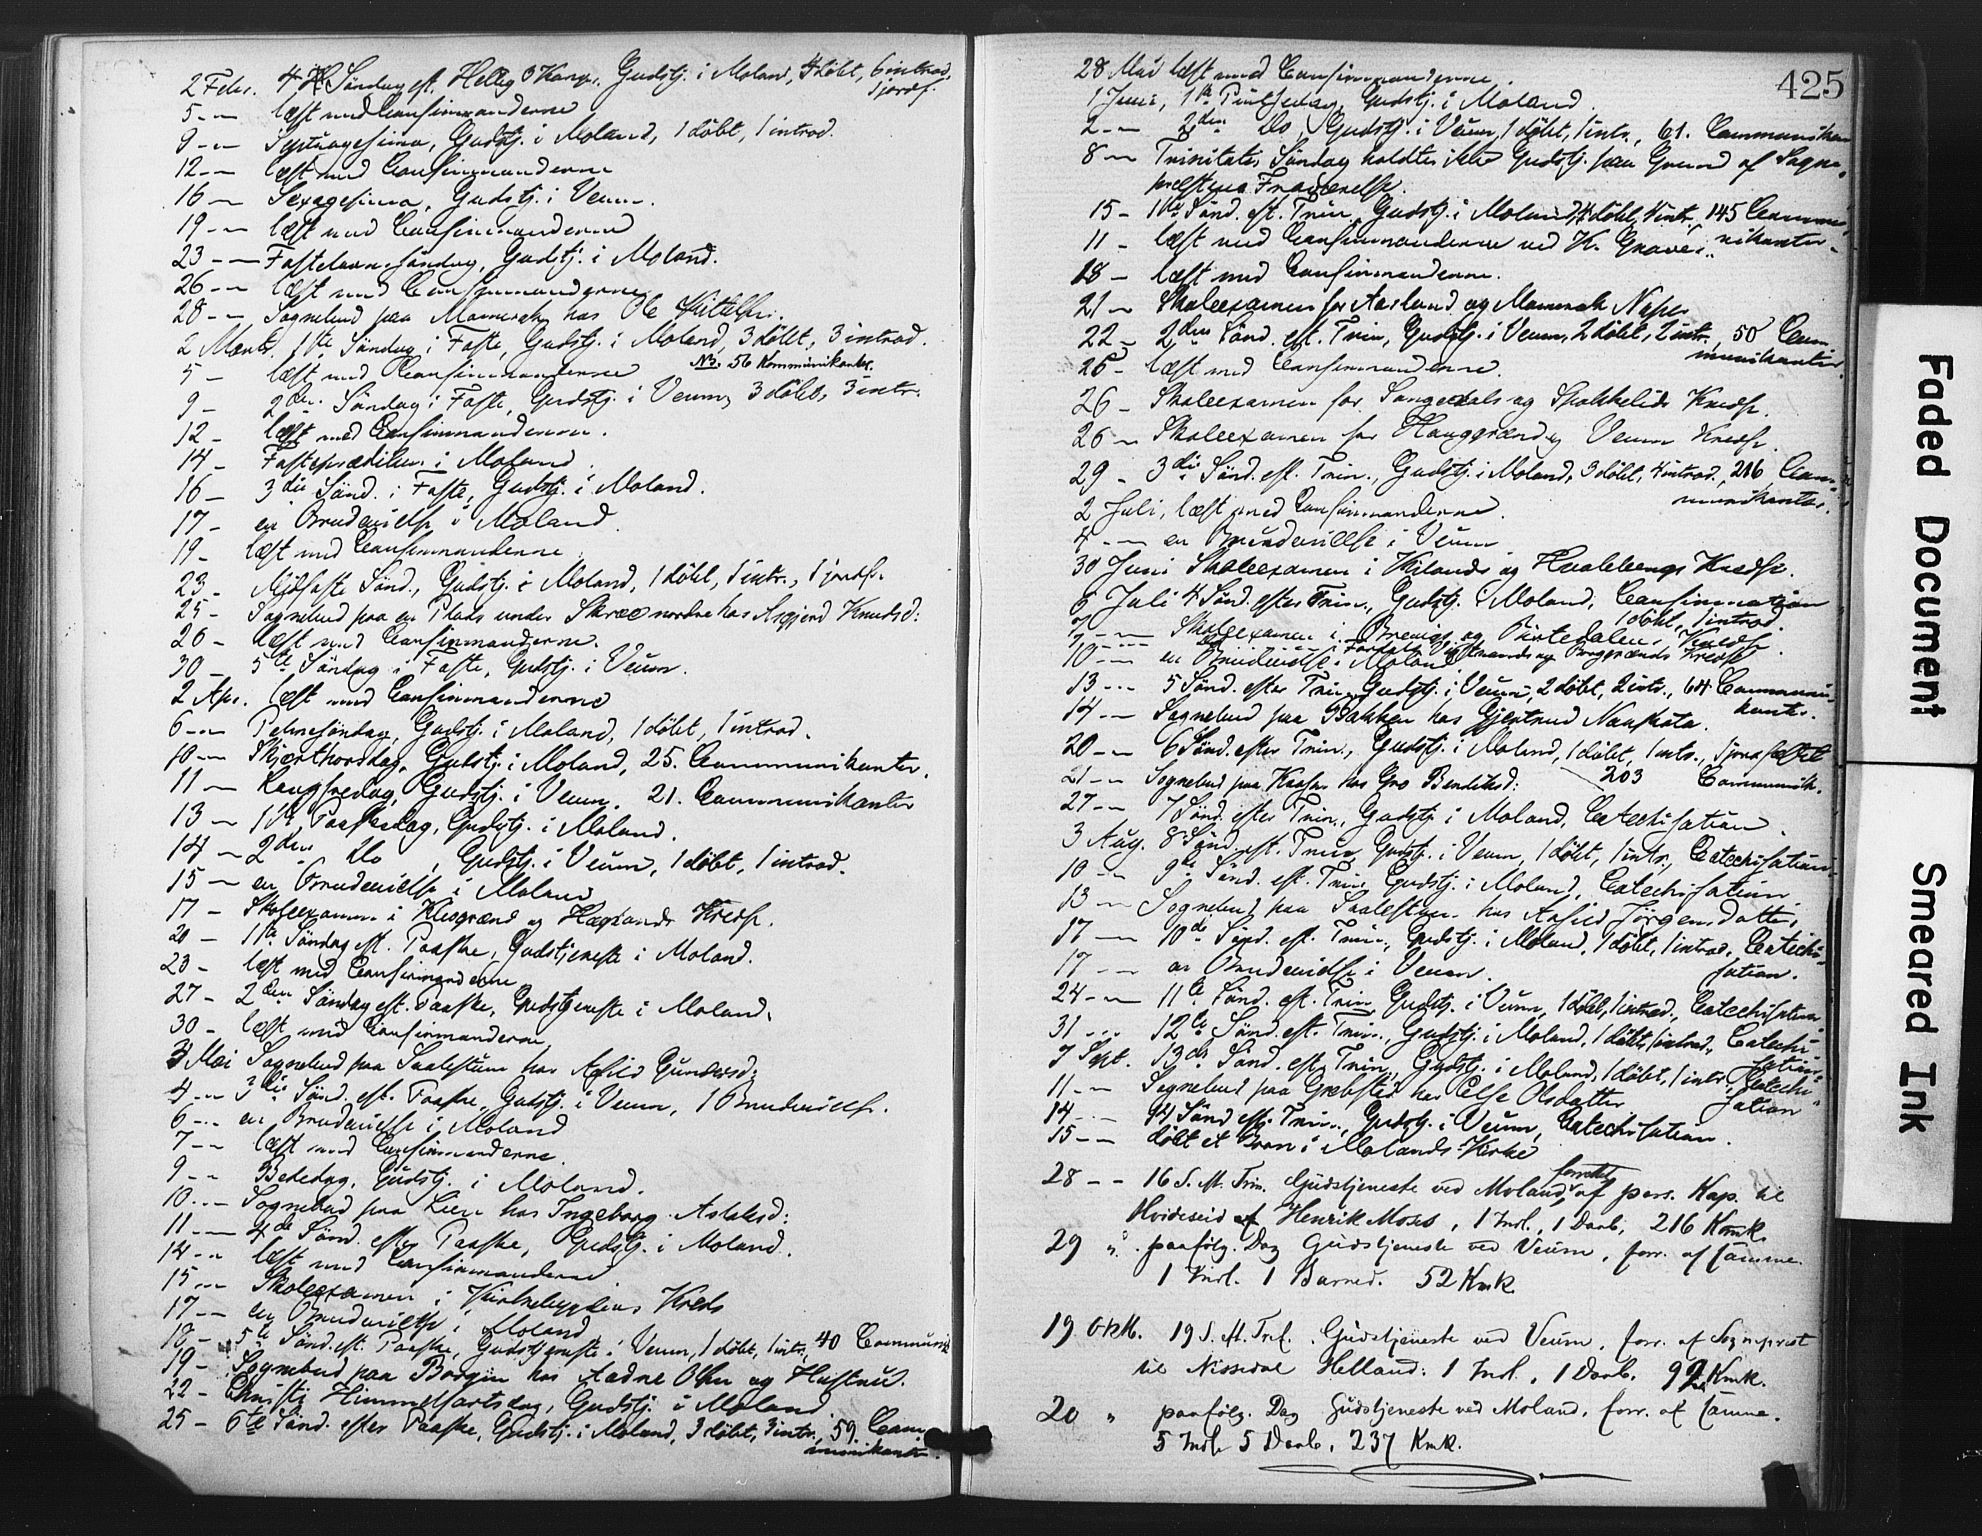 2 Febr. 4 S. Søndag eft. Hellig 3 Kong. Gudstj. i Moland, 4 døbt, 6 introd.
1 jordf.
5 — læst med Confirmanderne
9 — Septuagesima, Gudstj. i Moland, 1 døbt, 1 introd.
12 — læst med Confirmanderne
16 — Sexagesima, Gudstj. i Veum.
19 — læst med Confirmanderne
23 — Fastelavnssøndag, Gudstj. i Moland.
26 — læst med Confirmanderne
28 — Sognebud paa Momrak hos Ole Kittilsen.
2 Marts. 1ste Søndag i Faste, Gudstj. i Moland, 3 døbt, 3 introd.
NB. 56 Kommunikanter.
5 — læst med Confirmanderne
9 — 2den Søndag i Faste, Gudstj. i Veum, 3 døbt, 3 intr.
12 — læst med Confirmanderne.
14 — Fasteprædiken i Moland.
16 — 3die Sønd. i Faste, Gudstj. i Moland.
17 — en Brudevielse i Moland.
19 — læst med Confirmanderne.
23 — Midfaste Sønd., Gudstj. i Moland, 1 døbt, 1 intr., 1 jordf.
25 — Sognebud paa en Plads under Skree nordre hos Asgjerd Knudsd:
26 — læst med Confirmanderne.
30 — 5te Søndag i Faste, Gudstj. i Veum.
2 Apr. læst med Confirmanderne
6 — Palmesøndag, Gudstj. i Moland, 1 døbt, 1 introd.
10 — Skjærthorsdag, Gudstj. i Moland, 25. Communikanter.
11 — Langfredag, Gudstj. i Veum. 21. Communikanter
13 — 1ste Paaskedag, Gudstj. i Moland.
14 — 2den Do, Gudstj. i Veum, 1 døbt, 1 introd.
15 — en Brudevielse i Moland
17 — Skoleexamen i Klesgrænd og Høgelands Kredse.
20 — 1ste Søndag eft. Paaske, Gudstjeneste i Moland.
23 — læst med Confirmanderne
27 — 2den Søndag eft. Paaske, Gudstjeneste i Moland.
30 — læst med Confirmanderne
3 Mai Sognebud paa Saalestuen hos Asbild Gundersd:
4 — 3die Sønd. eft. Paaske, Gudstj. i Veum, 1 Brudevielse.
6 — en Brudevielse i Moland
7 — læst med Confirmanderne.
9 — Bededag, Gudstj. i Moland.
10 — Sognebud paa Lien hos Ingeborg Aslaksd:
11 — 4de Sønd. efter Paaske, Gudstj. i Moland.
14 — læst med Confirmanderne
15 — Skoleexamen i Kirkebygdens Kreds
17 — en Brudevielse i Moland
18 — 5te Sønd. eft. Paaske, Gudstjeneste i Veum, 1 døbt, 1 intr., 40 Communik
19 — Sognebud paa Borgin hos Aadne Olsen og Hustru.
22 — Christi Himmelfartsdag, Gudstj. i Moland
25 — 6te Sønd. efter Paaske, Gudstj. i Moland, 3 døbt, 3 intr., 59. Com
munikanter.
425
28 Mai læst med Confirmanderne.
1 Juni, 1ste Pintsedag, Gudstj. i Moland.
2 — 2den Do, Gudstj. i Veum, 1 døbt, 1 intr., 61. Communikan
8 — Trinitatis Søndag holdtes ikke Gudstj. paa Grund af Sogne-
præstens Fraværelse.
15 — 1ste Sønd. eft. Trin. Gudstj. i Moland, 4 døbt, 4 intr. 145 Commu-
nikanter.
11 — læst med Confirmanderne ved K. Graver.
18 — læst med Confirmanderne.
21 — Skoleexamen for Aarland og Momrak Næsse
22 — 2den Sønd. eft. Trin., Gudstj. i Veum, 2 døbt, 2 intr., 50 Com-
munikanter.
25 — læst med Confirmanderne.
26 — Skoleexamen for Songedals og Spokkelids Kredse.
26 — Skoleexamen for Hauggrænd og Veum Kredse
29 — 3die Sønd. eft. Trin., Gudstj. i Moland, 3 døbt, 4 introd., 216 Com-
munikanter.
2 Juli, læst med Confirmanderne.
4 — en Brudevielse i Veum
30 Juni Skoleexamen i Kilands og Hvalebergs Kredse.
6 Juli 4 Sønd. efter Trin., Gudstj. i Moland, Confirmation
1 døbt, 1 introd.
7 — Skoleexamen i Brevigs og Birtedalens Kredse
10 — en Brudevielse i Moland.
13 — 5 Sønd. efter Trin. Gudstj. i Veum, 2 døbt, 2 intr., 64 Communi-
kanter.
14 — Sognebud paa Bakken hos Gjertrud Naupkota.
20 — 6 Sønd. efter Trin., Gudstj. i Moland, 1 døbt, 1 intr., 1 jordfæstet
203 Communik.
21 — Sognebud paa Kaasen hos Gro Bendiksd:
27 — 7 Sønd. efter Trin., Gudstj. i Moland, Catechisation.
3 Aug. 8 Sønd. eft. Trin. Gudstj. i Veum, 1 døbt, 1 intr., Catechisation.
10 — 9de Sønd. eft. Trin. Gudstj. i Moland, Catechisation.
13 — Sognebud paa Saalestuen hos Aasild Jørgensdatter.
17 — 10de Sønd. eft. Trin., Gudstj. i Moland, 1 døbt, 1 introd. Catechi-
sation.
17 — en Brudevielse i Veum.
24 — 11te Sønd. eft. Trin. Gudstj. i Veum, 1 døbt, 1 introd., Catechisation
31 — 12te Sønd. eft. Trin., Gudstj. i Moland, 1 døbt, 1 introd., Catechi-
sation.
7 Sept. 13de Sønd. eft. Trin., Gudstj. i Moland, 1 døbt, 1 intr. Catechi-
sation
11 — Sognebud paa Græbsted hos Else Olsdatter
14 — 14 Sønd. eft. Trin., Gudstj. i Veum, Catechisation.
15 — døbt et Barn i Molands Kirke
28 — 16 S. eft. Trin. Gudstjeneste ved Moland, forrettet af pers. Kap. til
Hvideseid Henrik Moses, 1 Indl., 1 Daab, 216 Kmk.
29 " paafølg. Dag Gudstjeneste ved Veum, forr. af samme.
1 Indl. 1 Barned. 52 Kmk
19 Oktb. 19 S. eft. Tref. Gudstjeneste ved Veum, forr. af Sognepræst
til Nissedal Helland: 1 Indl., 1 Daab. 92 Kmk.
20 " paafølg. Dag Gudstjeneste ved Moland, forr. af samme.
5 Indl. 5 Daab, 237 Kmk.
Faded Document
Smeared Ink